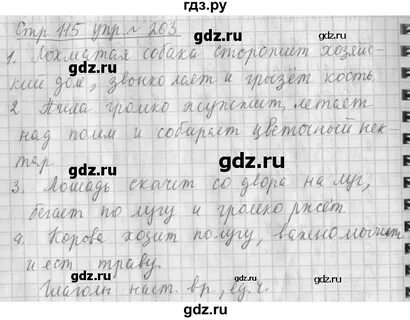 гдз.ру
Стр 115 упр № 203
1. Лохматая собака сторопшит хозяйс-
кий дом, звонко лает и грызёт кость.
2 Пчела громко жупспшит, летает
над полм и собирает цветочный нек-
тар
3. Лошадь скачет со двора на луг,
бегает по лугу и громко ржёт.
4. Корова ходит по лугу, важно мычит
и ест траву.
Глаголы наст. вр., ед. ч.